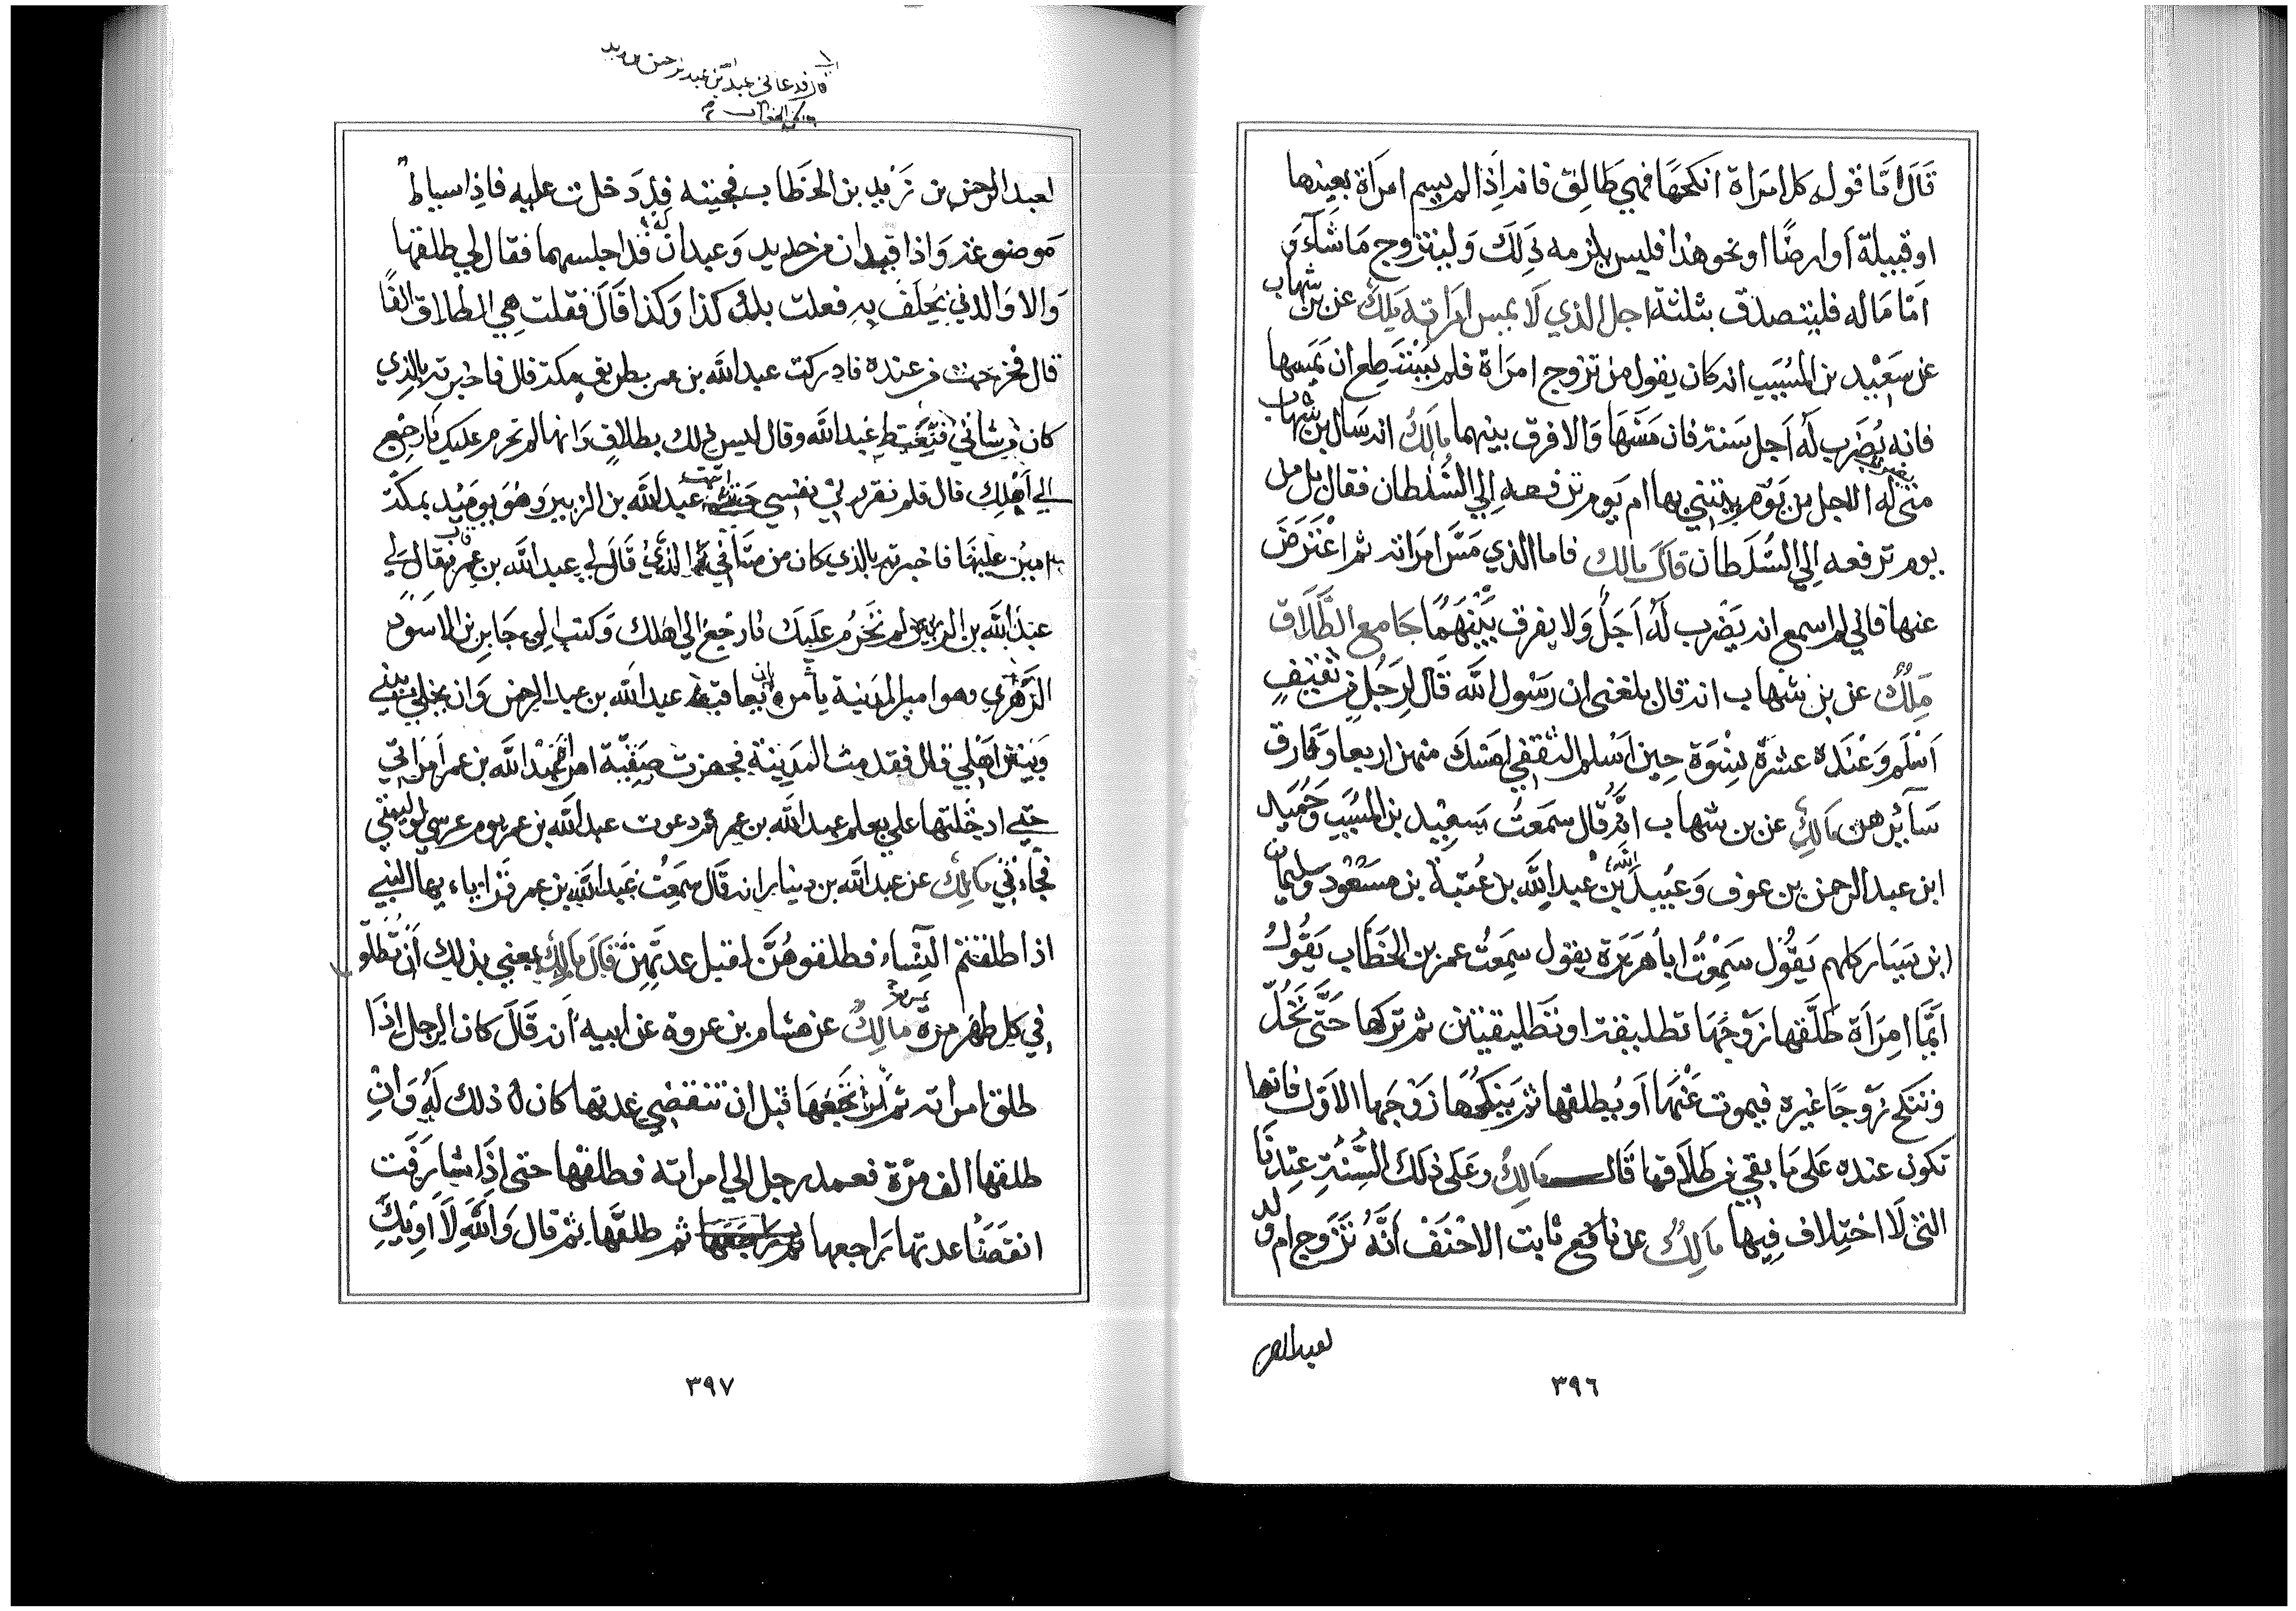 قَالَ امَّا قوله كل امرَاة انكحهَا فهي طَالِق فانه اِذا لم يسم امرَاة بعينها
او قبيلة اَو ارضًا او نحو هٰذا فليس يلزمه ذٰلِكَ وَليتزوج مَا شَآءَ وَ
اَمّا مَاله فليتصدق بثلثه اجل الذي لَا يمس امرَاته مٰلِك عن بن شهاب
عن سَعيْد بن المسُيَب انه كان يقول من تزوج امرَاة فلم يسْتَطِع ان يَمَسها
فانه يُضرَب لَه اَجل سَنة فان مَسّهَا وَالا فرق بينهما مالكُ انه سَال بن شهاب
متى له الاجل من يَوْم يبتني بها ام يَوم ترفعه اِلي السُّلطان فقال بل من
يوم ترفعه اِلي السُّلَطان قاَلَ مالك فاما الذي مَسَّ امرَاته ثم اعْتَرَضَ
عنها فاني لم اسمع انه يَضْرب لَهُ اَجَلٌ وَلا يفرق بَيْنَهُمَا جَامع الطَّلَاق
مٰلِكُ عن بن شهاب انه قال بلغني ان رَسُول الله قَال لِرَجُلٍ من ثَقيفٍ
اَسْلَم وَعْندَه عشرة نِسْوَة حِين اَسْلم الثقفي امَسك منهن اربعا وَفَارق
سَآئِرهن مَالِك عن بن شهاب انَّه قال سَمعَتُ سَعِيْد بن المسُيَب وَحُمَيد
ابن عبد الرحمن بن عوف وَعُبيد الله بن عبد الله بن عُتبةَ بن مسَعُود وسليمان
ابن يَسَار كلهم يَقُول سَمِعْتُ ابا هَرَيرَة يقول سَمِعَتُ عمر بن الخَطَّاب يَقُولُ
اَيّمَا امرَاَة طَلَّقها زَوجُهَا تطليقة او تَطليقتين ثم تركها حَتّى تَحُلَّ
وَتنكح زوجًا غيره فيموت عَنْهَا اَو يُطلقها ثم يَنكِحُهَا زَوْجَها الاَوّل فانها
تكون عنده عَلى مَا بقي من طَلَاقها قَال مَالِكُ وعَلى ذٰلكَ السُّنةِ عِنْدنَا
التى لَا اختِلاف فِيها مَالِكُ عن نافع ثابت الاحْنَفْ اَنَّهُ تَزَوج ام ولد
لعبد الرحمن
٣٩٦
قال فدعاني عبد الله بن عبد الرحمن بن زيد
بن الخطاب
لعبد الرحمن بن زَيد بن الخطَّاب فجيته فدَخلت عليه فاذِا سياط
مَوضوعة وَاذا قيدان من حديد وَعبدان له قد اجلسهما فقال لي طلقها
وَالا وَالذي يُحلَف بِهِ فعلت بك كذا وَكذا قَالَ فقلت هِي الطَلاق الفًا
قال فخرجت من عنده فادركت عبد الله بن عمر بطريق مكة قال فاخبرته بالذِي
كان من شاني فتغيظ عبد الله وقال ليس ذلك بطلاقٍ وَانها لم تحرم عليك فارجع
الى اَهْلك قال فلم تقررني نفسي حتى اتيت عبد الله بن الزبير وَهُوَ يوميْذ بمكة
امير عليهَا فاخبرته بالذي كان من شَانِي وَالذي قَالَ لي عبد الله بن عمر فقال لي
عبدَ الله بن الزبير لم تَحَرُم عليك فارجعْ الي اهلك وَكتب الي جَابر بن الاسوَد
الزَهْري وهوا مير المدينة يأمره ان يعاقب عبد الله بن عبد الرحمن وَان يخلي بيني
وَبيَن اَهْلي قال فقدمت المدَينة فجهزت صَفيّة امراة عبْد الله بن عمر امراتي
حتى ادخلتها علي بعلم عبد الله بن عمر ثم دعوت عبد الله بن عمر يوم عرسي لوليمتي
فجاءَني مَالِكُ عن عبد الله بن دينار انه قَال سَمِعَتُ عَبد الله بن عمر قرا يا ءيها النبي
اذا طلقتم النسَاء فطلقوهُنَّ لقبل عدتّهِنّ قَالَ مَالِك يعني بذلك اَن تُطَلّق
في كل طُهر مرة مَالِكُ عن هشام بن عروة عن ابيه اَنه قَالَ كان الرجل اِذَا
طلق امراته ثم ارتَجَعَهَا قبل ان تنقضي عدتها كان ذلك لَهُ وَانِ
طلقها الف مرّة فعمد رجل الي امراته فطلقها حتى اِذَا شارَفَت
انقضَاَ عدتها رَاجعها ثم رَاجعَها ثم طلقّها ثم قال وَالله لَا اَوِيْكِ
٣٩٧